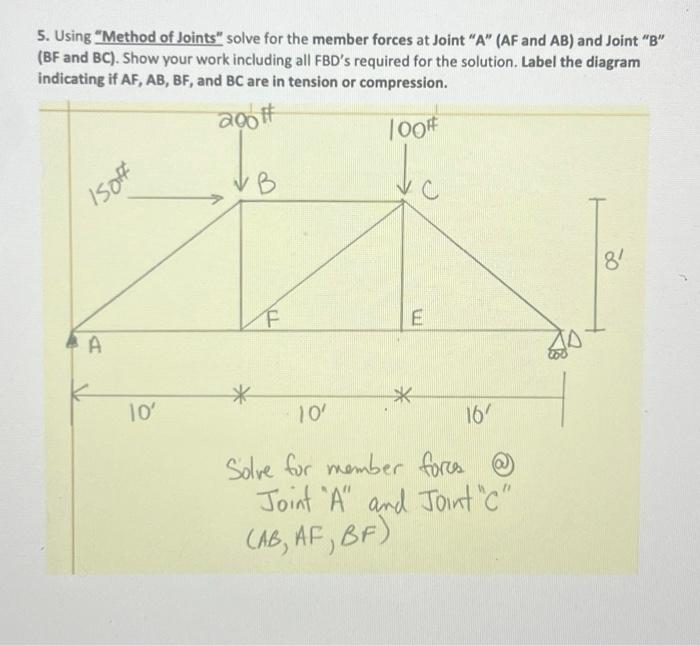 5. Using "Method of Joints" solve for the member forces at Joint "A" (AF and AB) and Joint "B"
(BF and BC). Show your work including all FBD's required for the solution. Label the diagram
indicating if AF, AB, BF, and BC are in tension or compression.
200#
100#
150#
B
C
8'
F
E
A
D
10'
10'
10'
Solve for member forces @
Joint "A" and Joint "C"
(AB, AF, BF)